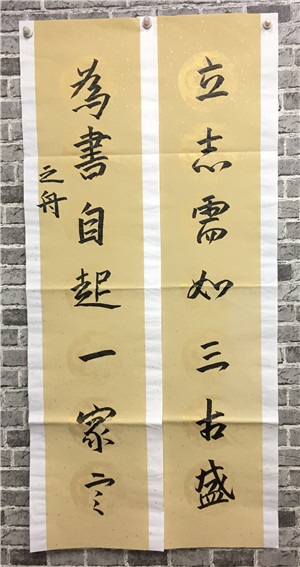 立志需如三古盛
為書自起一家言
之舟